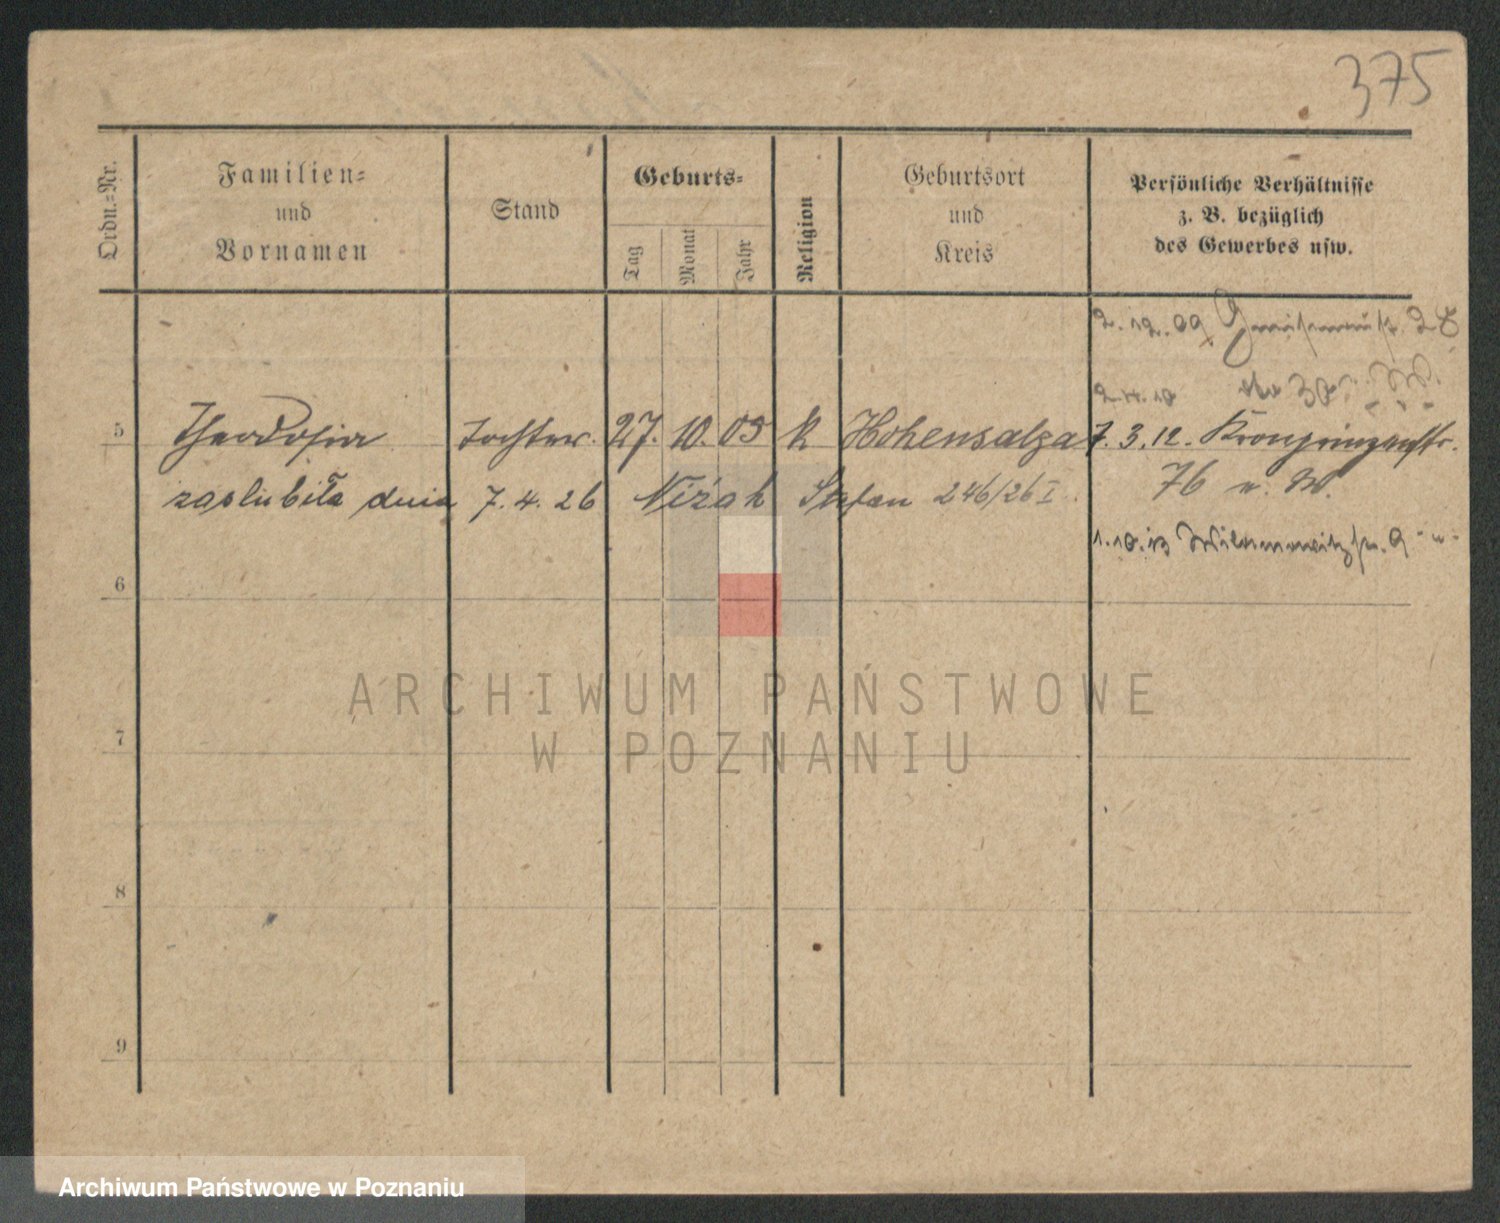 375
Ordn.-Nr.
Familien-
und
Vornamen
Stand
Geburts-
Tag
Monat
Jahr
Religion
Geburtsort
und
Kreis
Persönliche Verhältnisse
z. B. bezüglich
des Gewerbes usw.
2. 12. 09 Gneisenaustr.
5 Theodosia Tochter. 27. 10. 05 k Hohensalza 7. 3. 12. Kronprinzenstr.
zaślubiła dnia 7. 4. 26 Stefan 246/26 I
76 b. W.
1. 10. 13
6
7
8
9
ARCHIWUM PAŃSTWOWE
W POZNANIU
Archiwum Państwowe w Poznaniu